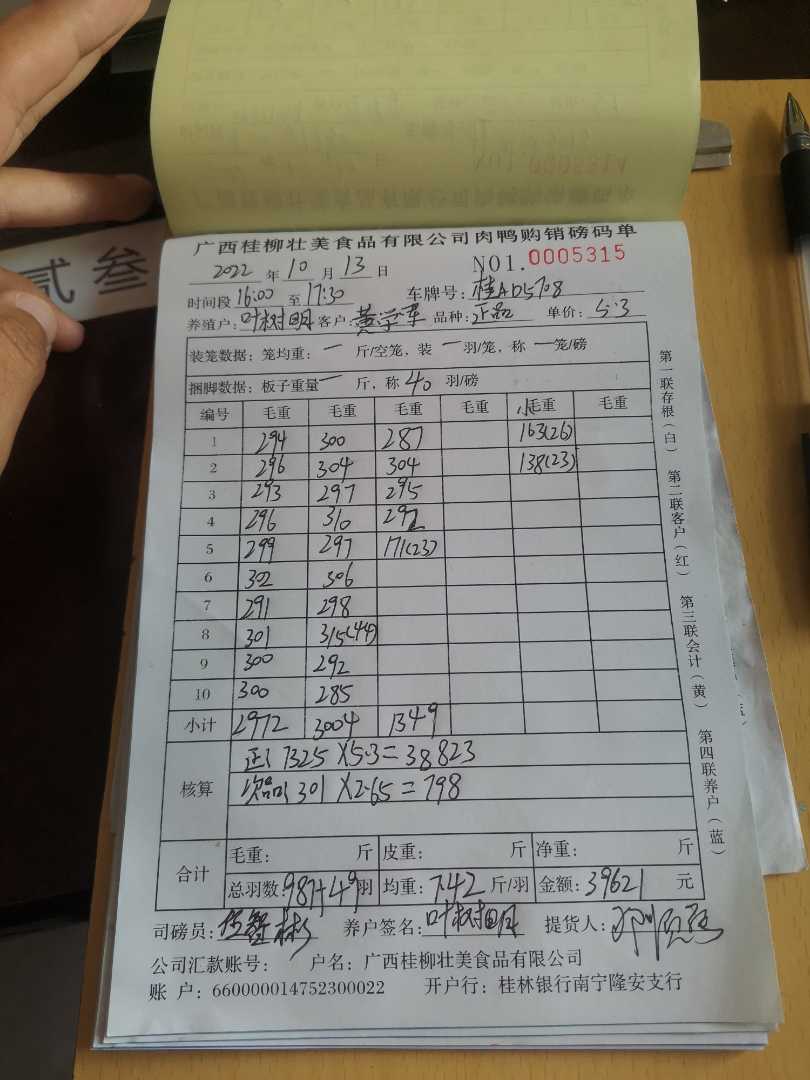 0005314
贰叁
广西桂柳壮美食品有限公司肉鸭购销磅码单
2022 年 10 月 13 日 NO1.0005315
时间段 16:00 至 17:30 车牌号: 桂AD5708
养殖户: 叶树明 客户: 黄学军 品种: 正品 单价: 5.3
装笼数据: 笼均重: 一 斤/空笼, 装 一 羽/笼, 称 一 笼/磅
捆脚数据: 板子重量 一 斤, 称 40 羽/磅
编号 毛重 毛重 毛重 毛重 毛重 毛重
1 294 300 287 163(26)
2 296 304 304 138(23)
3 293 297 295
4 296 310 292
5 299 297 171(23)
6 302 306
7 291 298
8 301 315(44)
9 300 292
10 300 285
小计 2972 3004 1349
核算 正: 7325 X5.3=38823
次品: 301 X2.65=798
合计 毛重: 斤 皮重: 斤 净重: 斤
总羽数: 987+49 羽 均重: 7.42 斤/羽 金额: 39621 元
司磅员: 养户签名: 叶树明 提货人:
公司汇款账号: 户名: 广西桂柳壮美食品有限公司
账 户: 660000014752300022 开户行: 桂林银行南宁隆安支行
第一联存根(白) 第二联客户(红) 第三联会计(黄) 第四联养户(蓝)